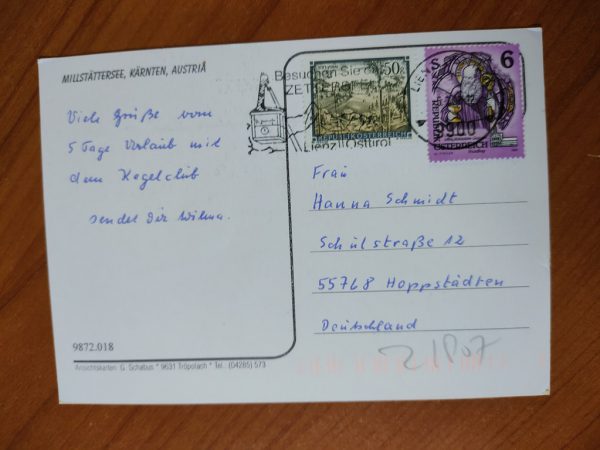 MILLSTÄTTERSEE, KÄRNTEN, AUSTRIA
Viele Grüße vom
5 Tage Urlaub mit
dem Kegelclub
sendet Dir Wilma.
9872.018
Ansichtskarten G. Schabus * 9631 Tröpolach * Tel. (04285) 573
Besuchen Sie
50
REPUBLIK ÖSTERREICH
Lienz Osttirol
LIENZ
9900
6
REPUBLIK
ÖSTERREICH
Frau
Hanna Schmidt
Schulstraße 12
55768 Hoppstädten
Deutschland
21807